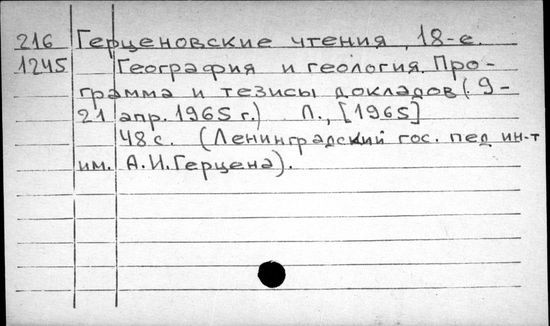 216 Герценовские чтения, 18-е.
1245 География и геология. Про-
грамма и тезисы докладов (9-
21 апр. 1965 г.) Л., [1965]
48 с. (Ленинградский гос. пед ин-т
им. А.И.Герцена).